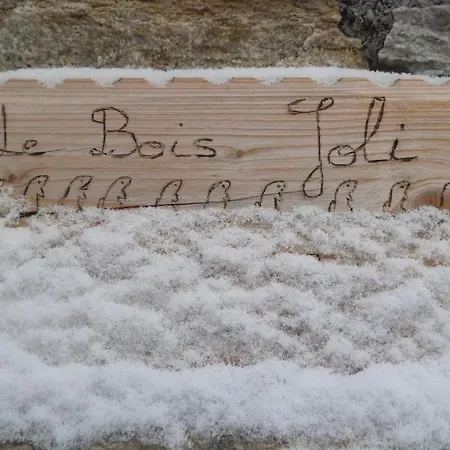 Le Bois Joli